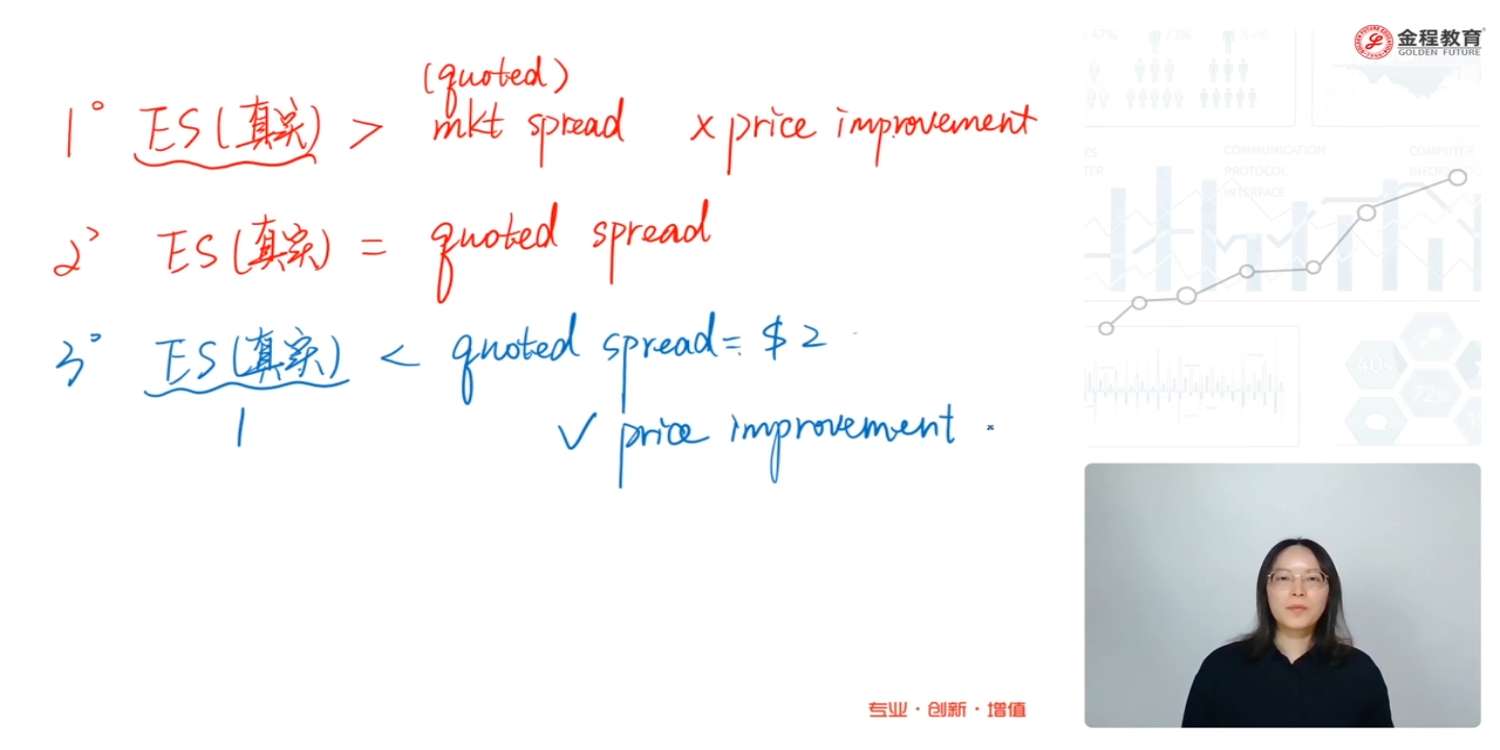 (quoted)
1° ES(真实) > mkt spread × price improvement
2° ES(真实) = quoted spread
3° ES(真实) < quoted spread = $2
1
√ price improvement
专业·创新·增值
金程教育
GOLDEN FUTURE
COMMUNICATION
PROTOCOL
INTERFACE